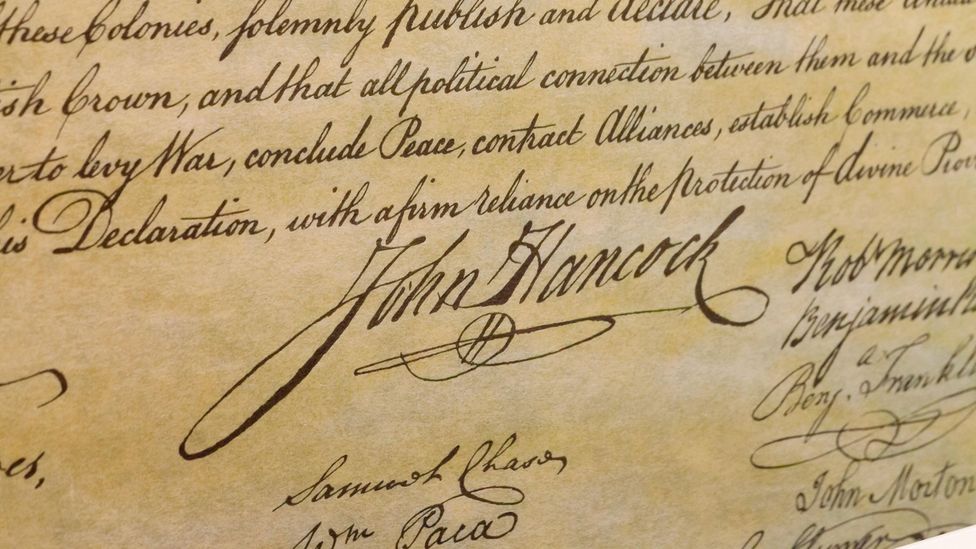 these Colonies, solemnly publish and declare, That these
ish Crown, and that all political connection between them and the
er to levy War, conclude Peace, contract Alliances, establish Commerce,
is Declaration, with a firm reliance on the protection of divine
John Hancock
Rob^t Morris
Benjamin
Benj. ^a Frankl
Samuel Chase
W^m Paca
John Morton